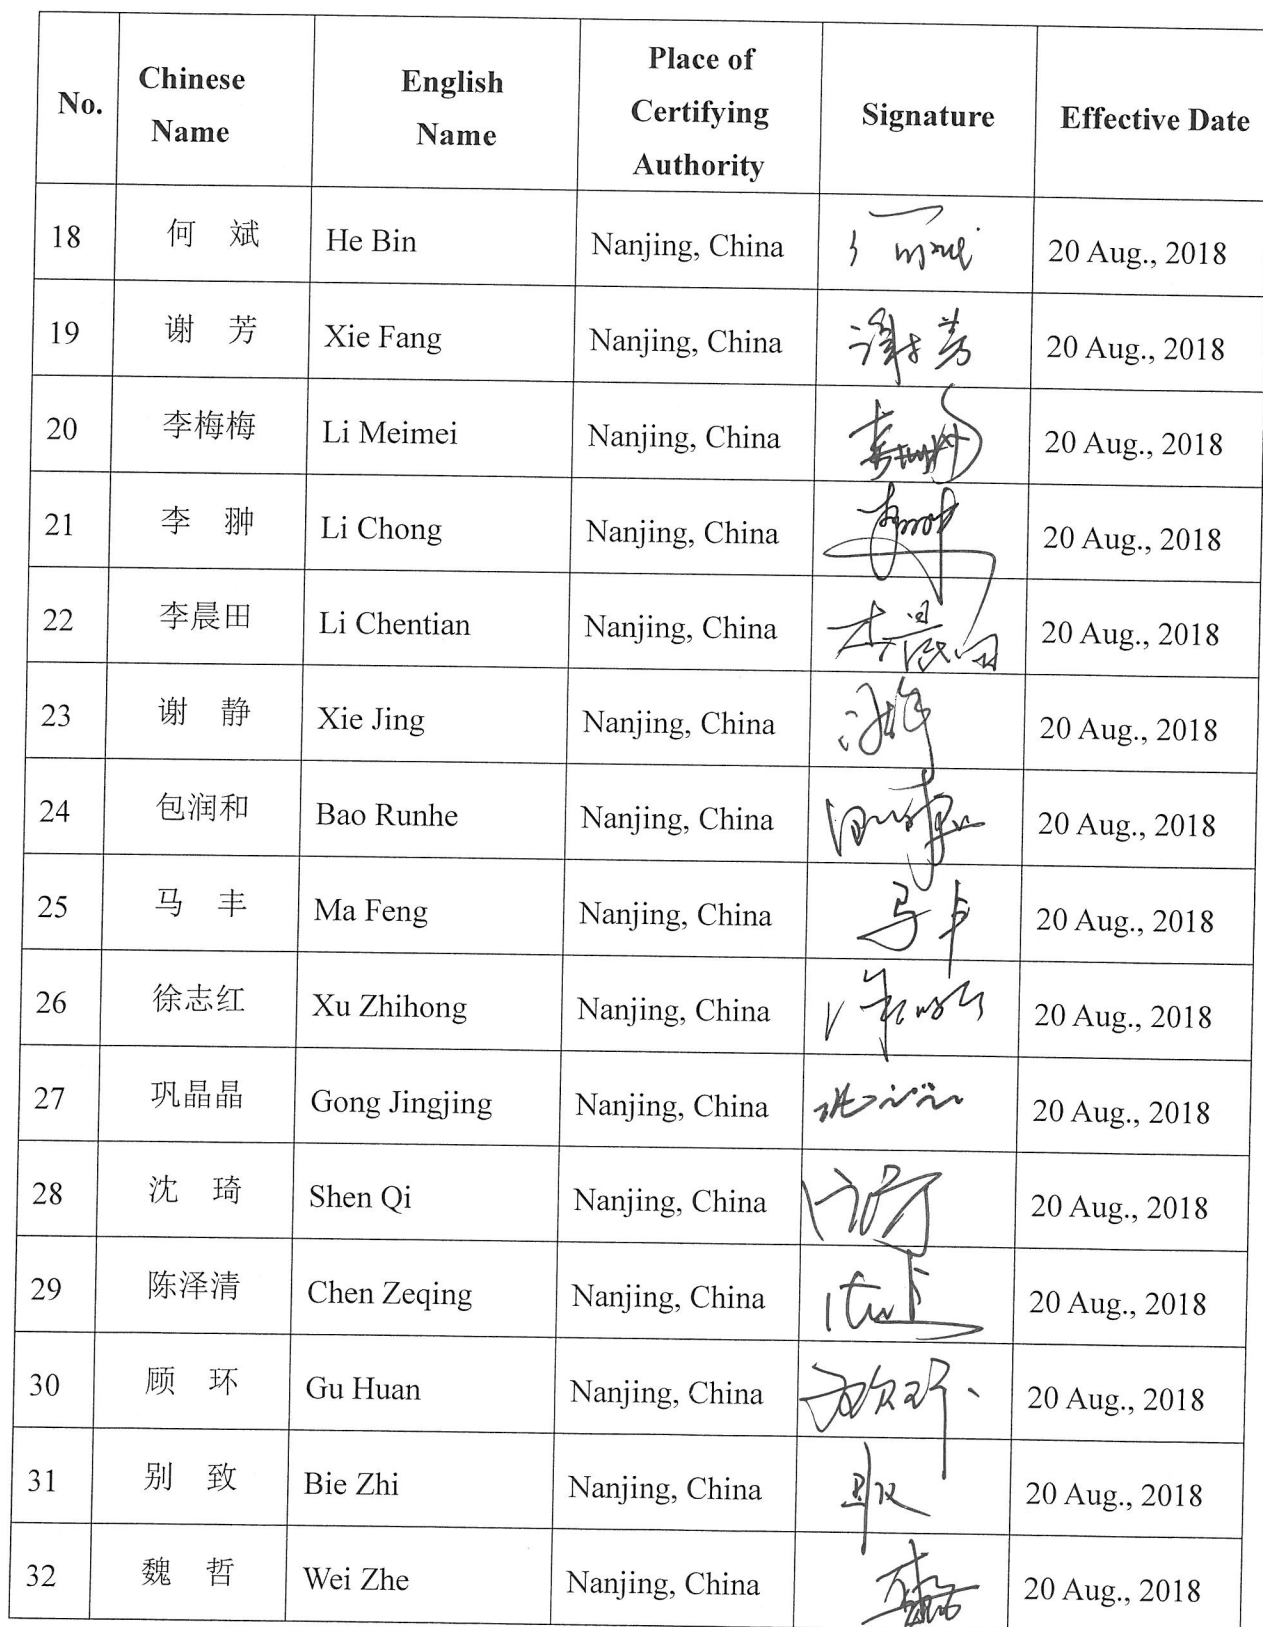 No. Chinese Name English Name Place of Certifying Authority Signature Effective Date
18 何 斌 He Bin Nanjing, China 20 Aug., 2018
19 谢 芳 Xie Fang Nanjing, China 谢芳 20 Aug., 2018
20 李梅梅 Li Meimei Nanjing, China 20 Aug., 2018
21 李 翀 Li Chong Nanjing, China 20 Aug., 2018
22 李晨田 Li Chentian Nanjing, China 20 Aug., 2018
23 谢 静 Xie Jing Nanjing, China 20 Aug., 2018
24 包润和 Bao Runhe Nanjing, China 20 Aug., 2018
25 马 丰 Ma Feng Nanjing, China 马丰 20 Aug., 2018
26 徐志红 Xu Zhihong Nanjing, China 20 Aug., 2018
27 巩晶晶 Gong Jingjing Nanjing, China 20 Aug., 2018
28 沈 琦 Shen Qi Nanjing, China 20 Aug., 2018
29 陈泽清 Chen Zeqing Nanjing, China 20 Aug., 2018
30 顾 环 Gu Huan Nanjing, China 20 Aug., 2018
31 别 致 Bie Zhi Nanjing, China 20 Aug., 2018
32 魏 哲 Wei Zhe Nanjing, China 20 Aug., 2018